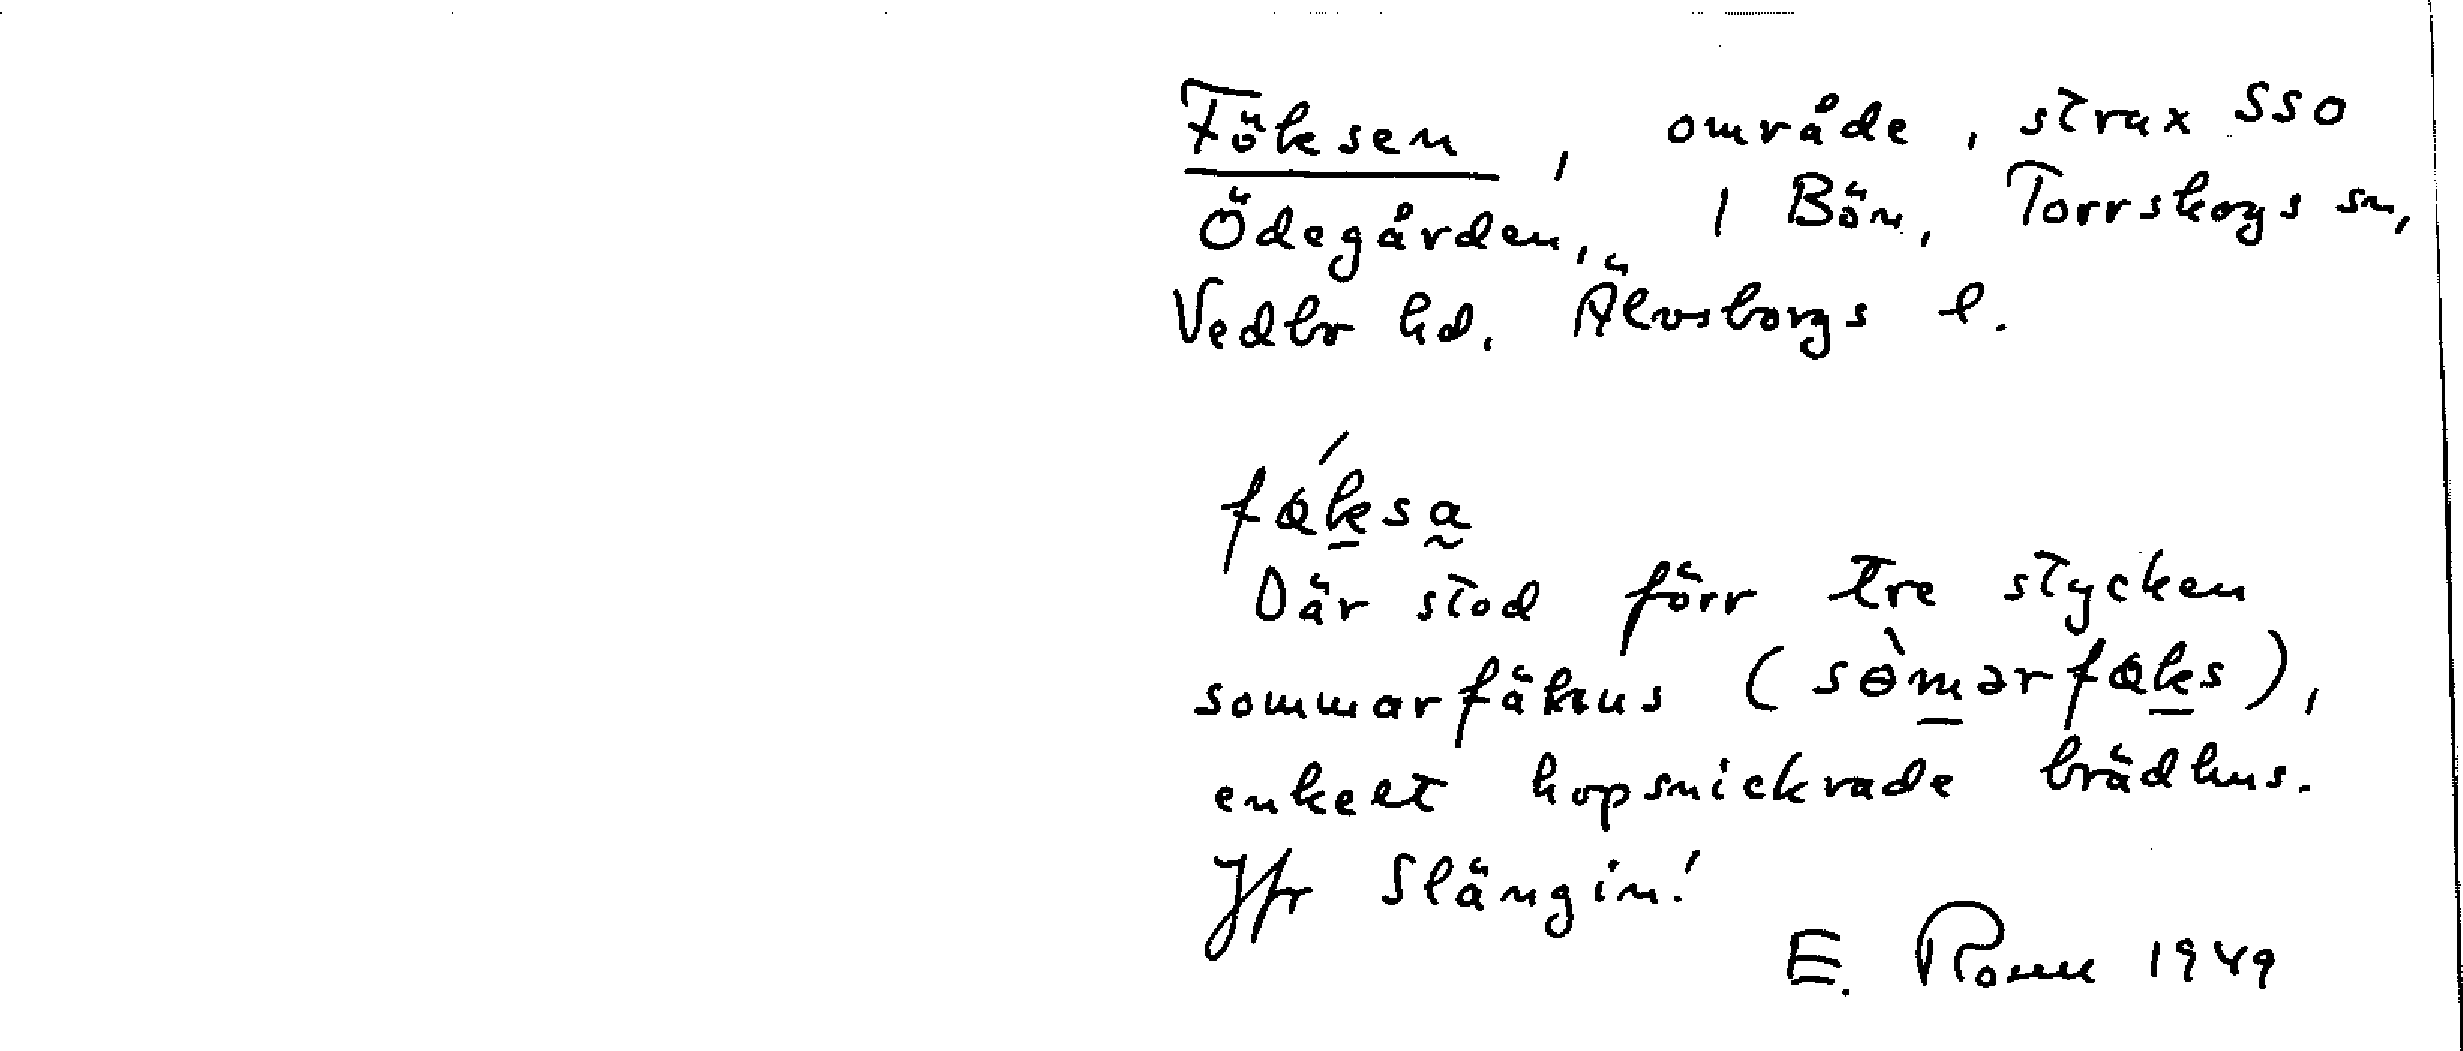 Föksen, område, strax SSO
Ödegården, 1 Bön, Torrskogs sn,
Vedbo hd. Älvsborgs l.
Där stod förr tre stycken
sommarfähus
enkelt hopsnickrade brädhus.
Jfr Slängin!
E. 1949